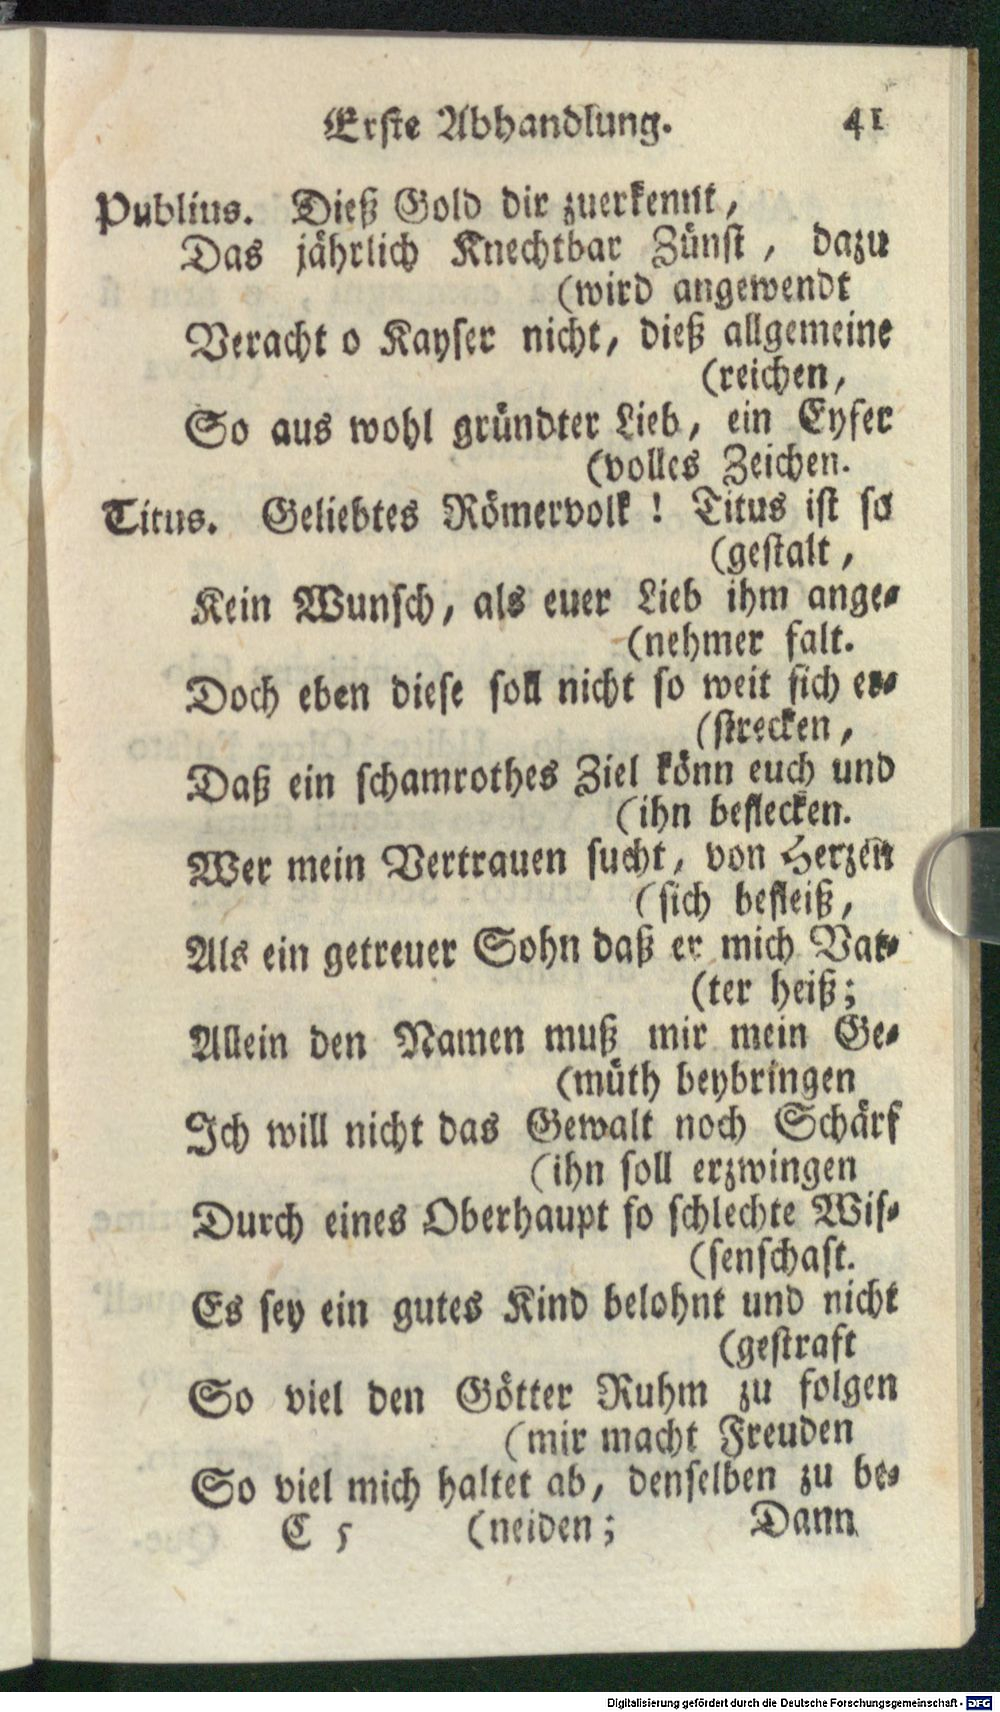 Erste Abhandlung. 41
Publius. Dieß Gold dir zuerkennt,
Das jährlich Knechtbar Zünst, dazu
(wird angewendt
Veracht o Kayser nicht, dieß allgemeine
(reichen,
So aus wohl gründter Lieb, ein Eyfer
(volles Zeichen.
Titus. Geliebtes Römervolk! Titus ist so
(gestalt,
Kein Wunsch, als euer Lieb ihm ange-
(nehmer falt.
Doch eben diese soll nicht so weit sich er-
(strecken,
Daß ein schamrothes Ziel könn euch und
(ihn beflecken.
Wer mein Vertrauen sucht, von Herzen
(sich befleiß,
Als ein getreuer Sohn daß er mich Vat-
(ter heiß;
Allein den Namen muß mir mein Ge-
(müth beybringen
Ich will nicht das Gewalt noch Schärf
(ihn soll erzwingen
Durch eines Oberhaupt so schlechte Wis-
(senschaft.
Es sey ein gutes Kind belohnt und nicht
(gestraft
So viel den Götter Ruhm zu folgen
(mir macht Freuden
So viel mich haltet ab, denselben zu be-
C 5 (neiden; Dann
Digitalisierung gefördert durch die Deutsche Forschungsgemeinschaft - DFG